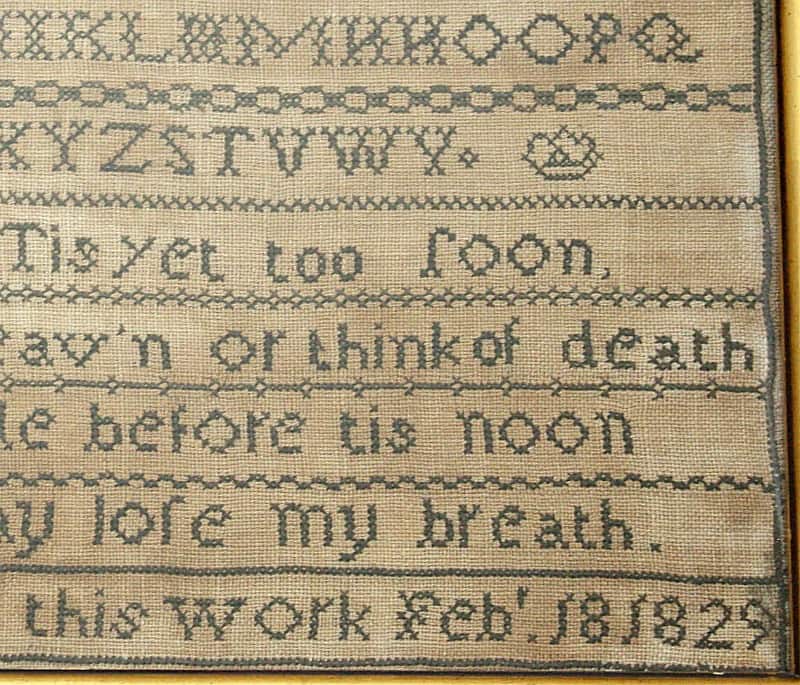 IKLMMNNOOPQ
XYZSTVWY
Tis yet too ſoon,
eav'n or think of death
before tis noon
ay loſe my breath.
this Work Feb'. 18 1829